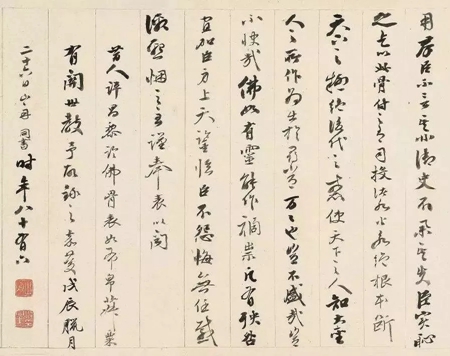 用羣臣不言其非御史不舉其失臣實恥
之乞以此骨付之有司投諸水火永絕根本斷
天下之疑絕後代之惑使天下之人知大聖
人之所作為出於尋常萬萬也豈不盛哉豈
不快哉佛如有靈能作禍祟凡有殃咎
宜加臣身上天鑒臨臣不怨悔無任感
激懇悃之至謹奉表以聞
昔人評昌黎論佛骨表如布帛菽粟
有關世教予故錄之嘉慶戊辰臘月
二十六日山舟同書時年八十有六